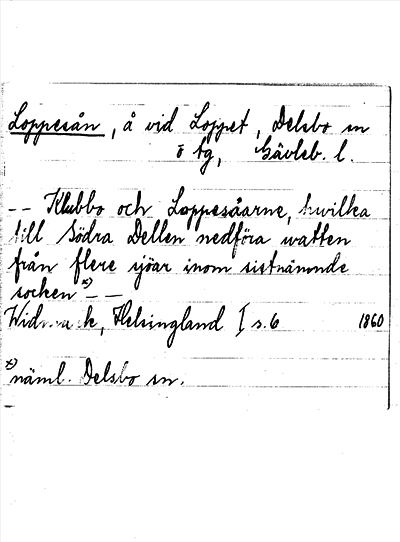 Loppesån, å vid Loppet, Delsbo sn
o tg, Gävleb. l.
-- Klubbo och Loppesåarne, hwilka
till Södra Dellen nedföra watten
från flere sjöar inom sistnämnde
socken x) --
Widmark, Helsingland I s. 6 1860
x) näml. Delsbo sn.